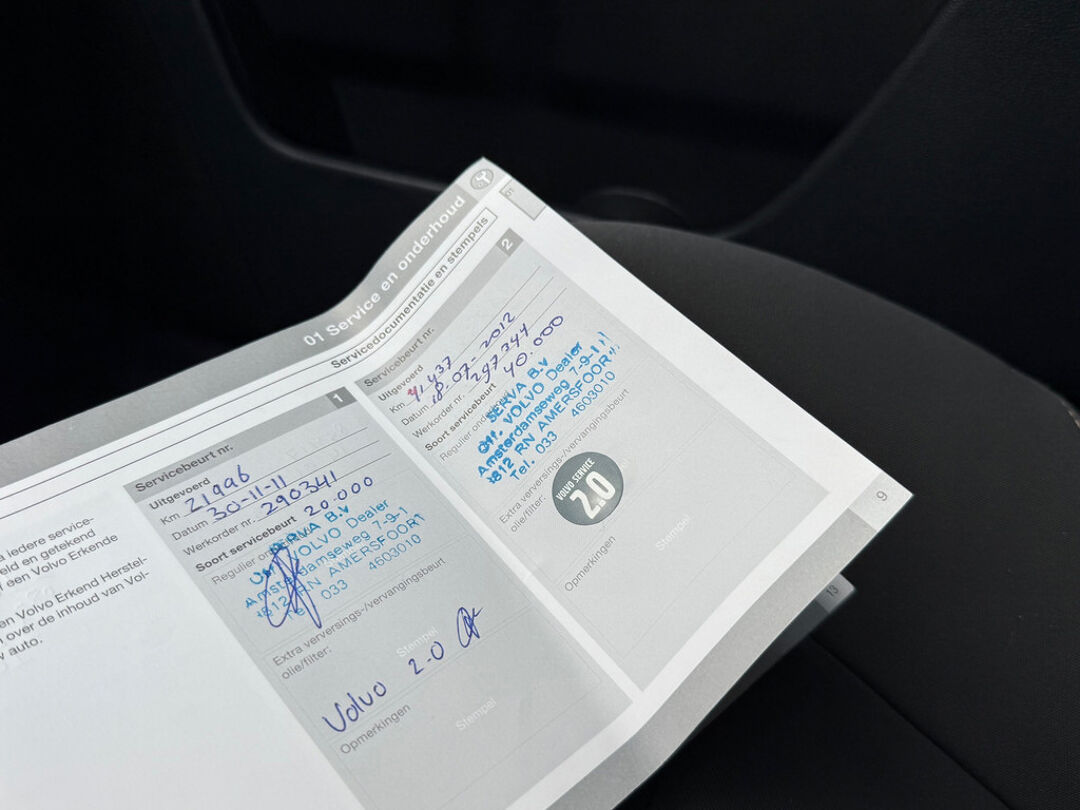 01 Service en onderhoud
Servicedocumentatie en stempels
iedere service-
eld en getekend
een Volvo Erkende
en Volvo Erkend Herstel-
over de inhoud van Vol-
auto.
1
Servicebeurt nr.
Uitgevoerd
Km 21996
Datum 30-11-11
Werkorder nr. 290341
Soort servicebeurt 20.000
Regulier
SERVA B.V
VOLVO Dealer
Amsterdamseweg 7-9-1
3812 RN AMERSFOORT
Tel. 033 4603010
Extra verversings-/vervangingsbeurt
olie/filter:
Stempel
Volvo 2.0
Opmerkingen
Stempel
01
2
Servicebeurt nr.
Uitgevoerd
Km 41437
Datum 18-07-2012
Werkorder nr. 297344
Soort servicebeurt 40.000
Regulier
SERVA B.V
Off. VOLVO Dealer
Amsterdamseweg 7-9-11
3812 RN AMERSFOORT
Tel. 033 4603010
Extra verversings-/vervangingsbeurt
olie/filter:
VOLVO SERVICE
2.0
Opmerkingen
Stempel
9
13